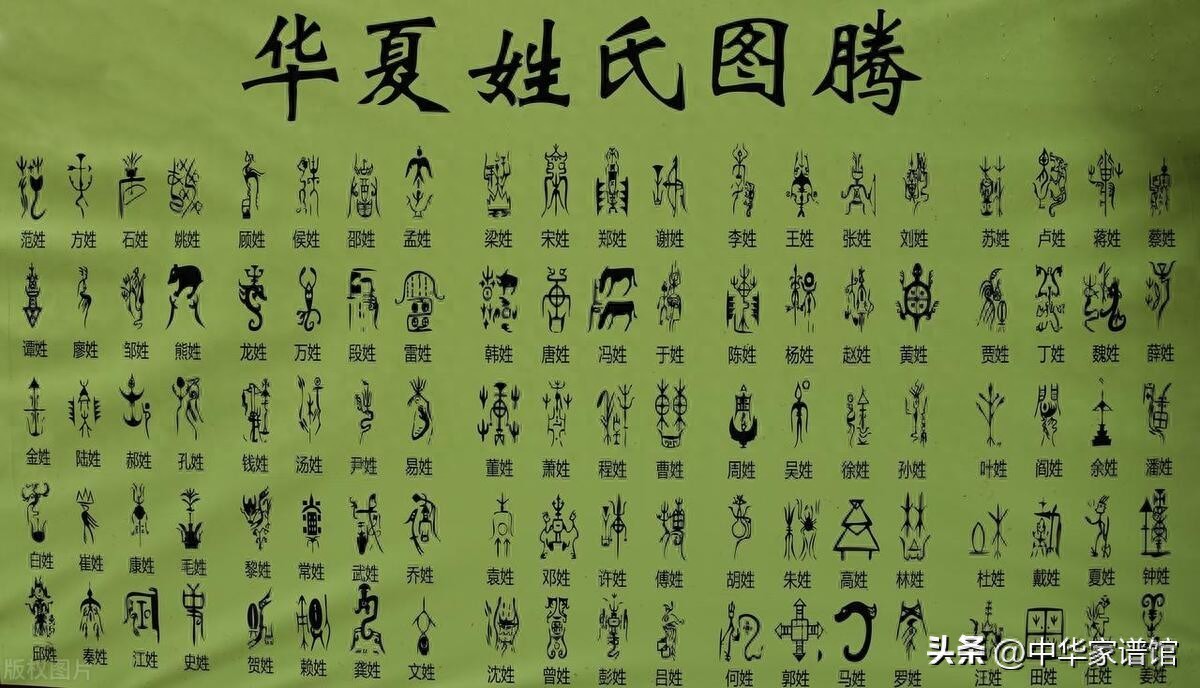 华夏姓氏图腾
范姓 方姓 石姓 姚姓 顾姓 侯姓 邵姓 孟姓 梁姓 宋姓 郑姓 谢姓 李姓 王姓 张姓 刘姓 苏姓 卢姓 蒋姓 蔡姓
谭姓 廖姓 邹姓 熊姓 龙姓 万姓 段姓 雷姓 韩姓 唐姓 冯姓 于姓 陈姓 杨姓 赵姓 黄姓 贾姓 丁姓 魏姓 薛姓
金姓 陆姓 郝姓 孔姓 钱姓 汤姓 尹姓 易姓 董姓 萧姓 程姓 曹姓 周姓 吴姓 徐姓 孙姓 叶姓 阎姓 余姓 潘姓
白姓 崔姓 康姓 毛姓 黎姓 常姓 武姓 乔姓 袁姓 邓姓 许姓 傅姓 胡姓 朱姓 高姓 林姓 杜姓 戴姓 夏姓 钟姓
邱姓 秦姓 江姓 史姓 贺姓 赖姓 龚姓 文姓 沈姓 曾姓 彭姓 吕姓 何姓 郭姓 马姓 罗姓 汪姓 田姓 任姓 姜姓
版权图片
头条 @中华家谱馆